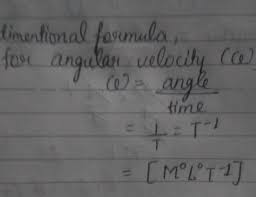 dimentional formula,
for angular velocity (ω)
ω = angle / time
= 1/T = T⁻¹
= [M⁰L⁰T⁻¹]